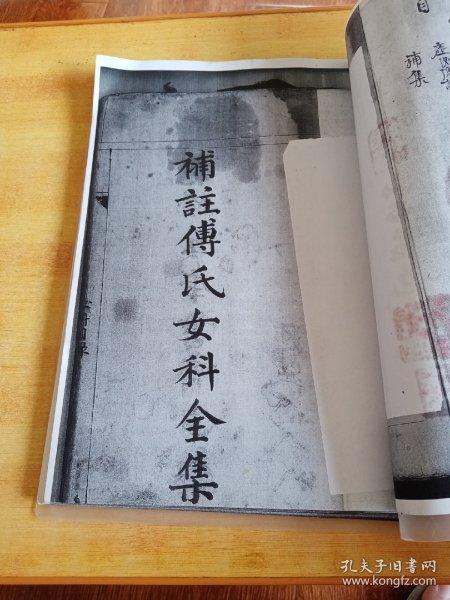 補註傅氏女科全集
目
補集
孔夫子旧书网
www.kongfz.com